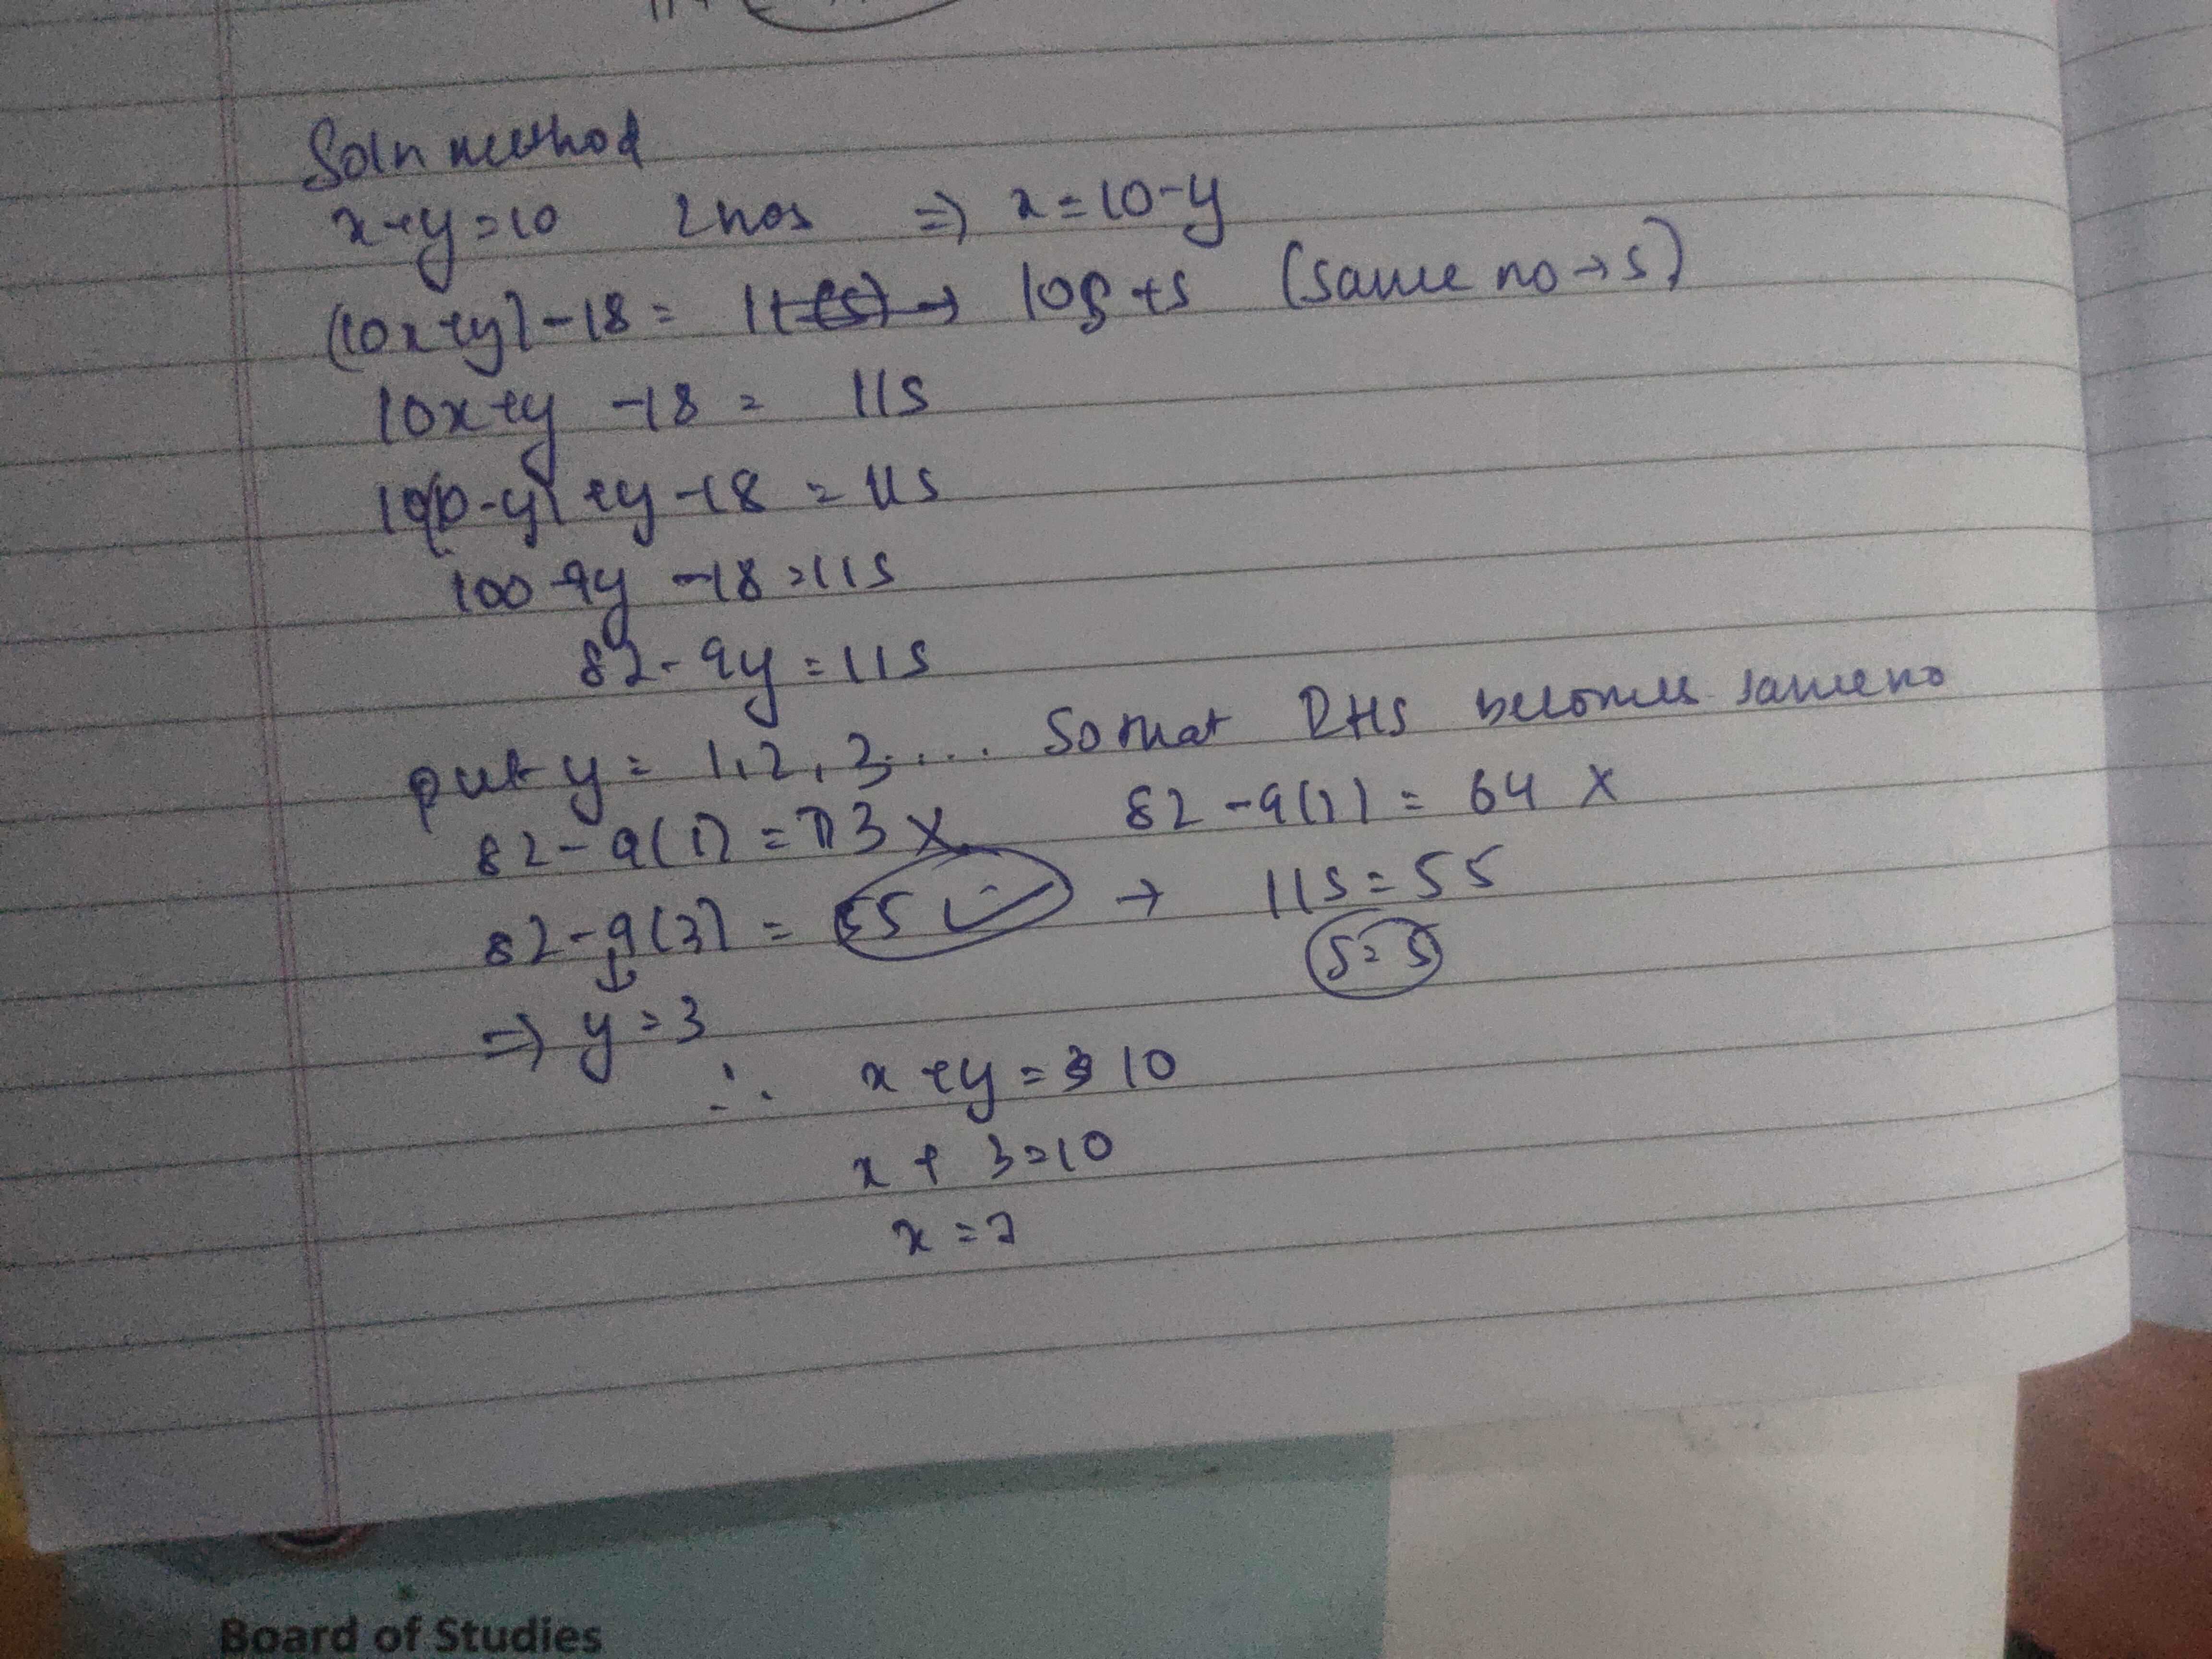 Soln method
x+y=10 2nos => x=10-y
(10x+y)-18= 11(s) → 10s+s (same no→s)
10x+y -18 = 11s
10(10-y)+y-18 = 11s
100-9y -18=11s
82-9y=11s
put y= 1,2,3.... So that RHS becomes same no
82-9(1)=73 X 82-9(2)= 64 X
82-9(3) = 55 ✓ → 11s=55
s=5
=> y=3
∴ x+y= 10
x+3=10
x=7
Board of Studies